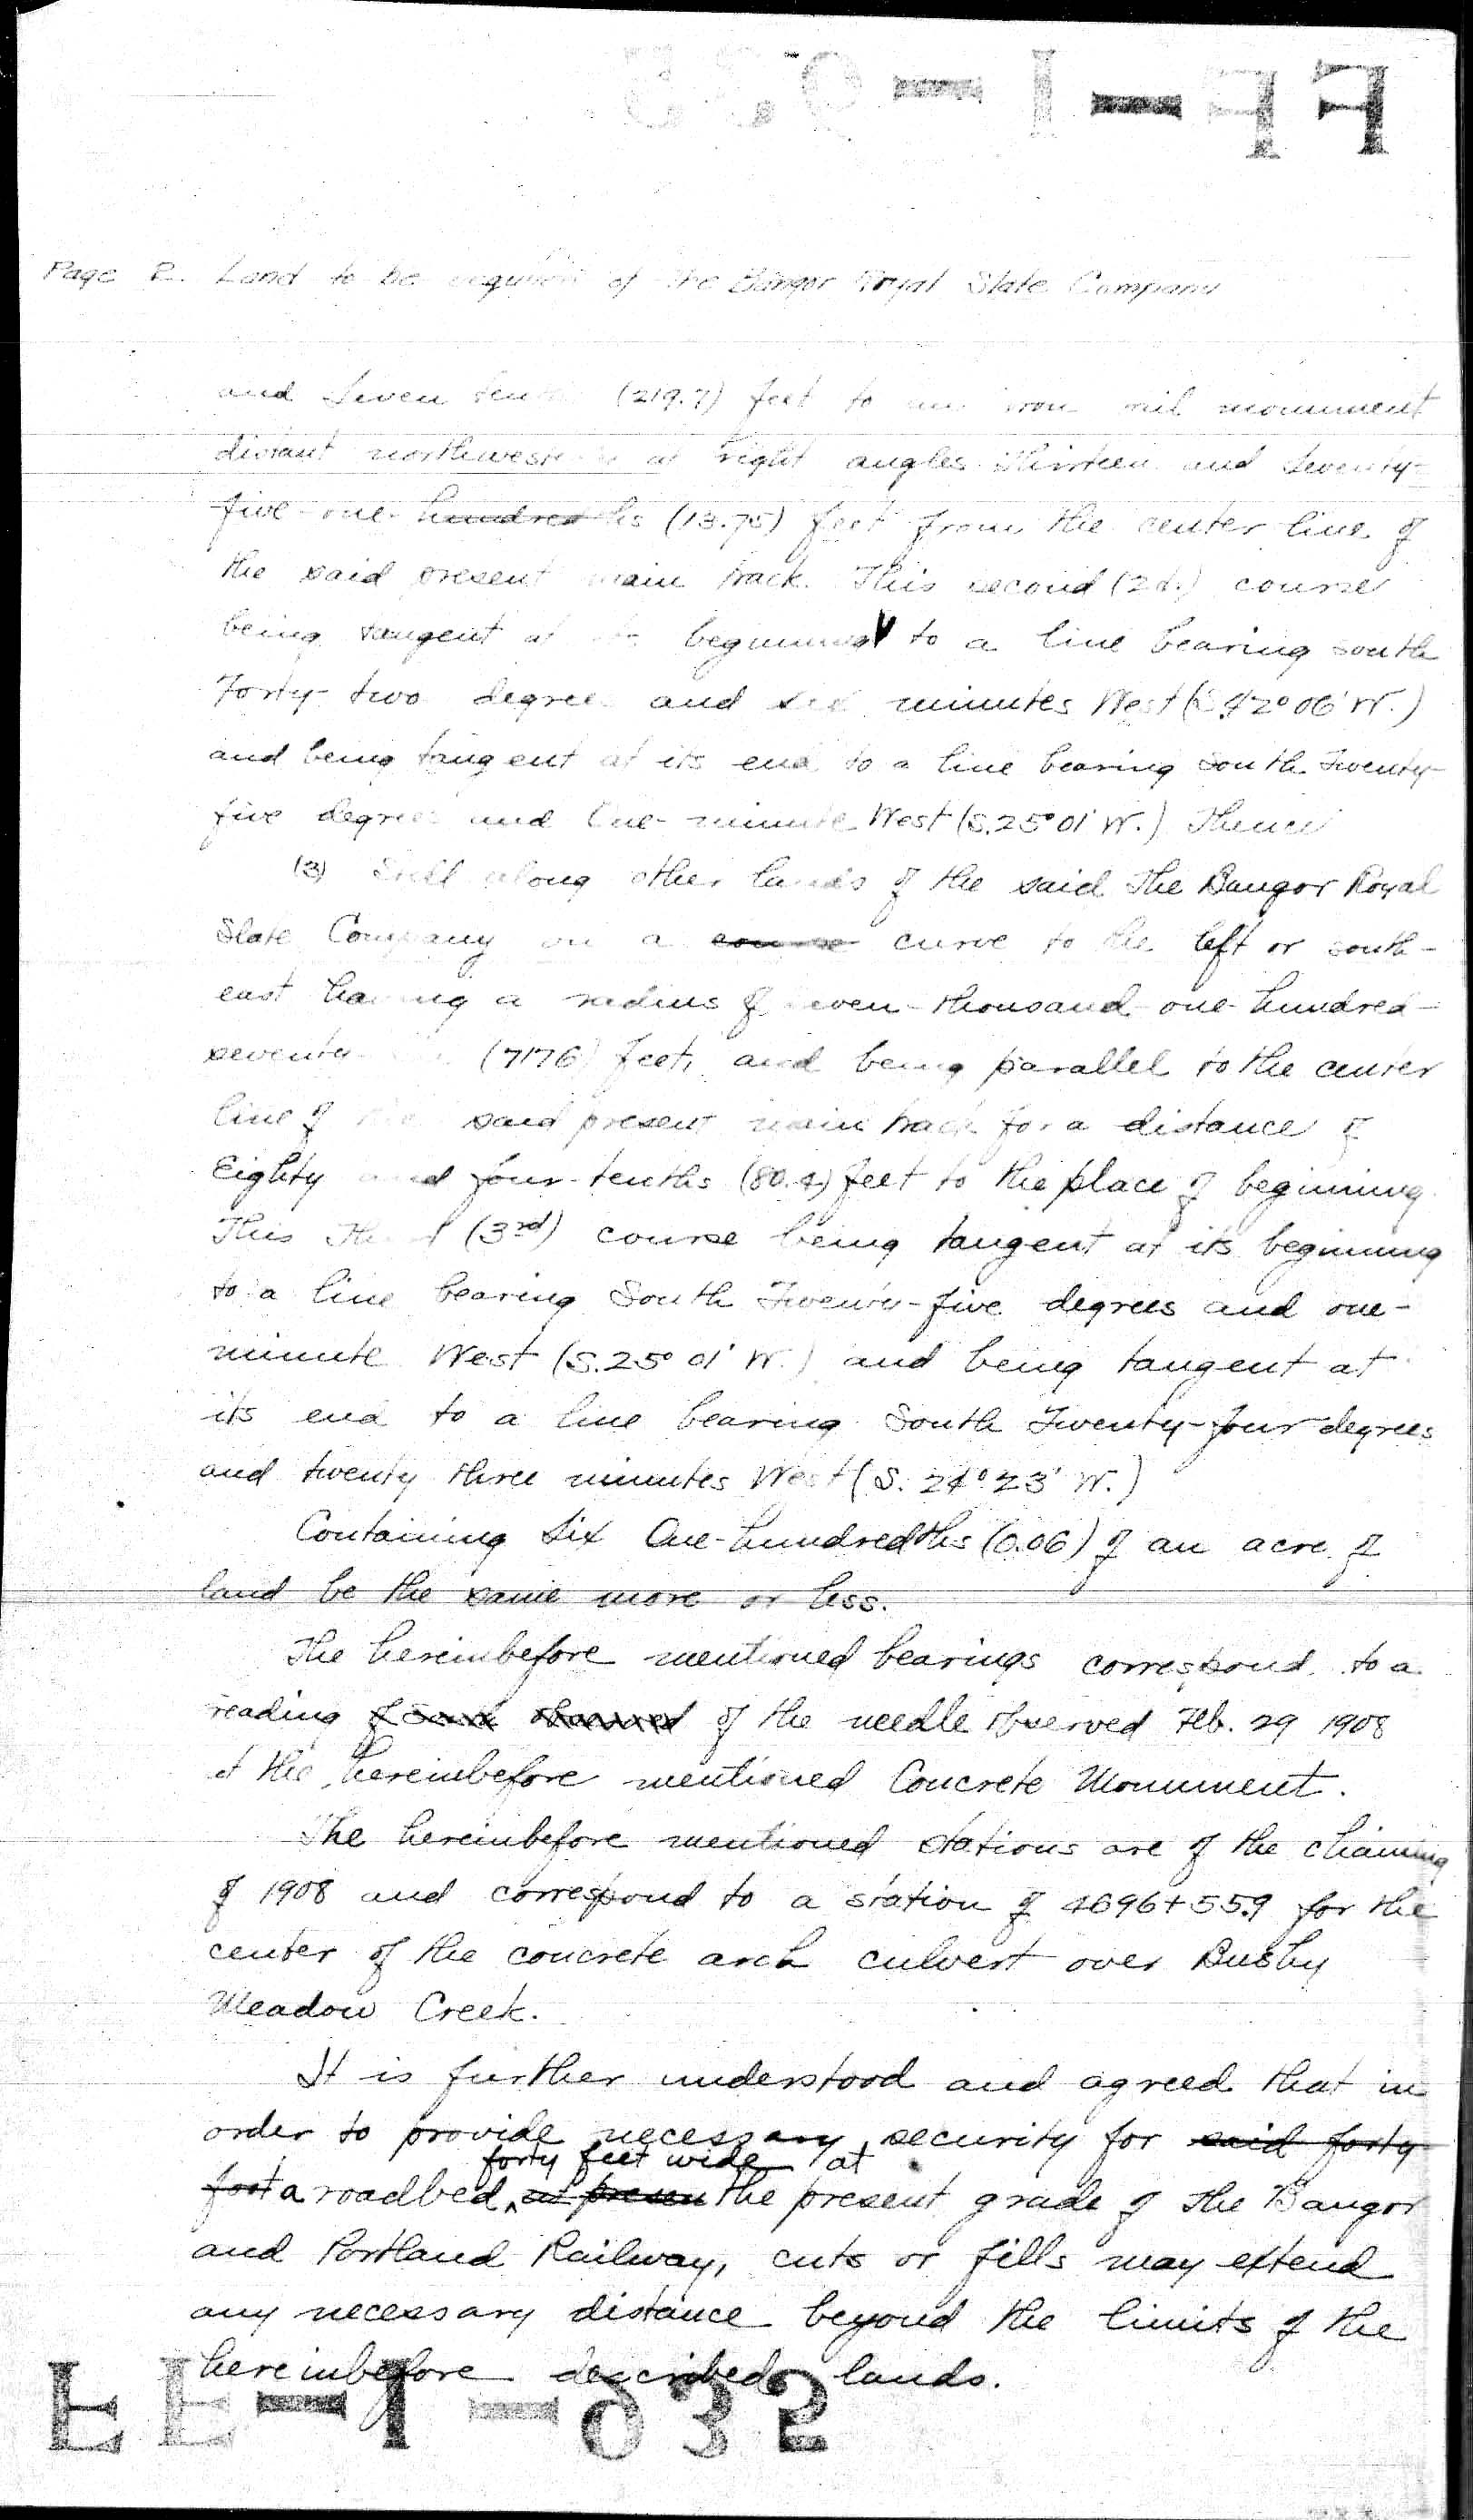 Page 2. Land to be acquired of the Bangor Royal Slate Company
and Seven tenths (219.7) feet to an iron rail monument
distant northwesterly at right angles thirteen and seventy-
five one-hundredths (13.75) feet from the center line of
the said present main track. This second (2d.) course
being tangent at its beginning to a line bearing south
Forty-two degrees and six minutes West (S.42°06' W.)
and being tangent at its end to a line bearing South Twenty-
five degrees and One-minute West (S.25°01' W.) Thence
(3) Still along other lands of the said The Bangor Royal
Slate Company on a course curve to the left or south-
east having a radius of seven-thousand-one-hundred-
seventy (7176) feet, and being parallel to the center
line of the said present main track for a distance of
Eighty and four-tenths (80.4) feet to the place of beginning.
This Third (3rd) course being tangent at its beginning
to a line bearing South Twenty-five degrees and one-
minute West (S.25° 01' W.) and being tangent at
its end to a line bearing South Twenty-four degrees
and twenty three minutes West (S. 24° 23' W.)
Containing Six One-hundredths (0.06) of an acre of
land be the same more or less.
The hereinbefore mentioned bearings correspond to a
reading of the needle observed Feb. 29 1908
at the hereinbefore mentioned Concrete Monument.
The hereinbefore mentioned stations are of the chaining
of 1908 and correspond to a station of 4696+55.9 for the
center of the concrete arch culvert over Bushy
Meadow Creek.
It is further understood and agreed that in
order to provide necessary security for said forty
forty feet wide at
foot a roadbed, the present grade of The Bangor
and Portland Railway, cuts or fills may extend
any necessary distance beyond the limits of the
hereinbefore described lands.